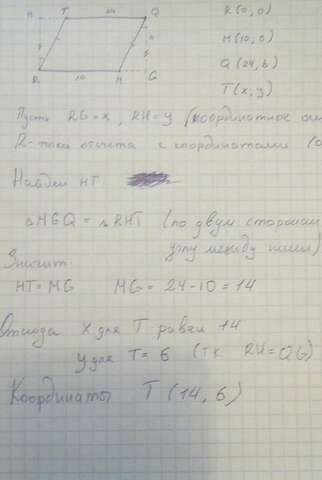 H T 24 Q
R 10 M G
R(0,0)
M(10,0)
Q(24,6)
T(x;y)
Пусть RG=x, RH=y (координатное
R- точка отсчета с координатами (0
Найдем HT.
△MGQ = △RHT (по двум сторонам
углу между ними)
Значит:
HT=MG MG = 24-10=14
Отсюда x для T равен 14
y для T= 6 (тк RH=QG)
Координаты T(14,6)